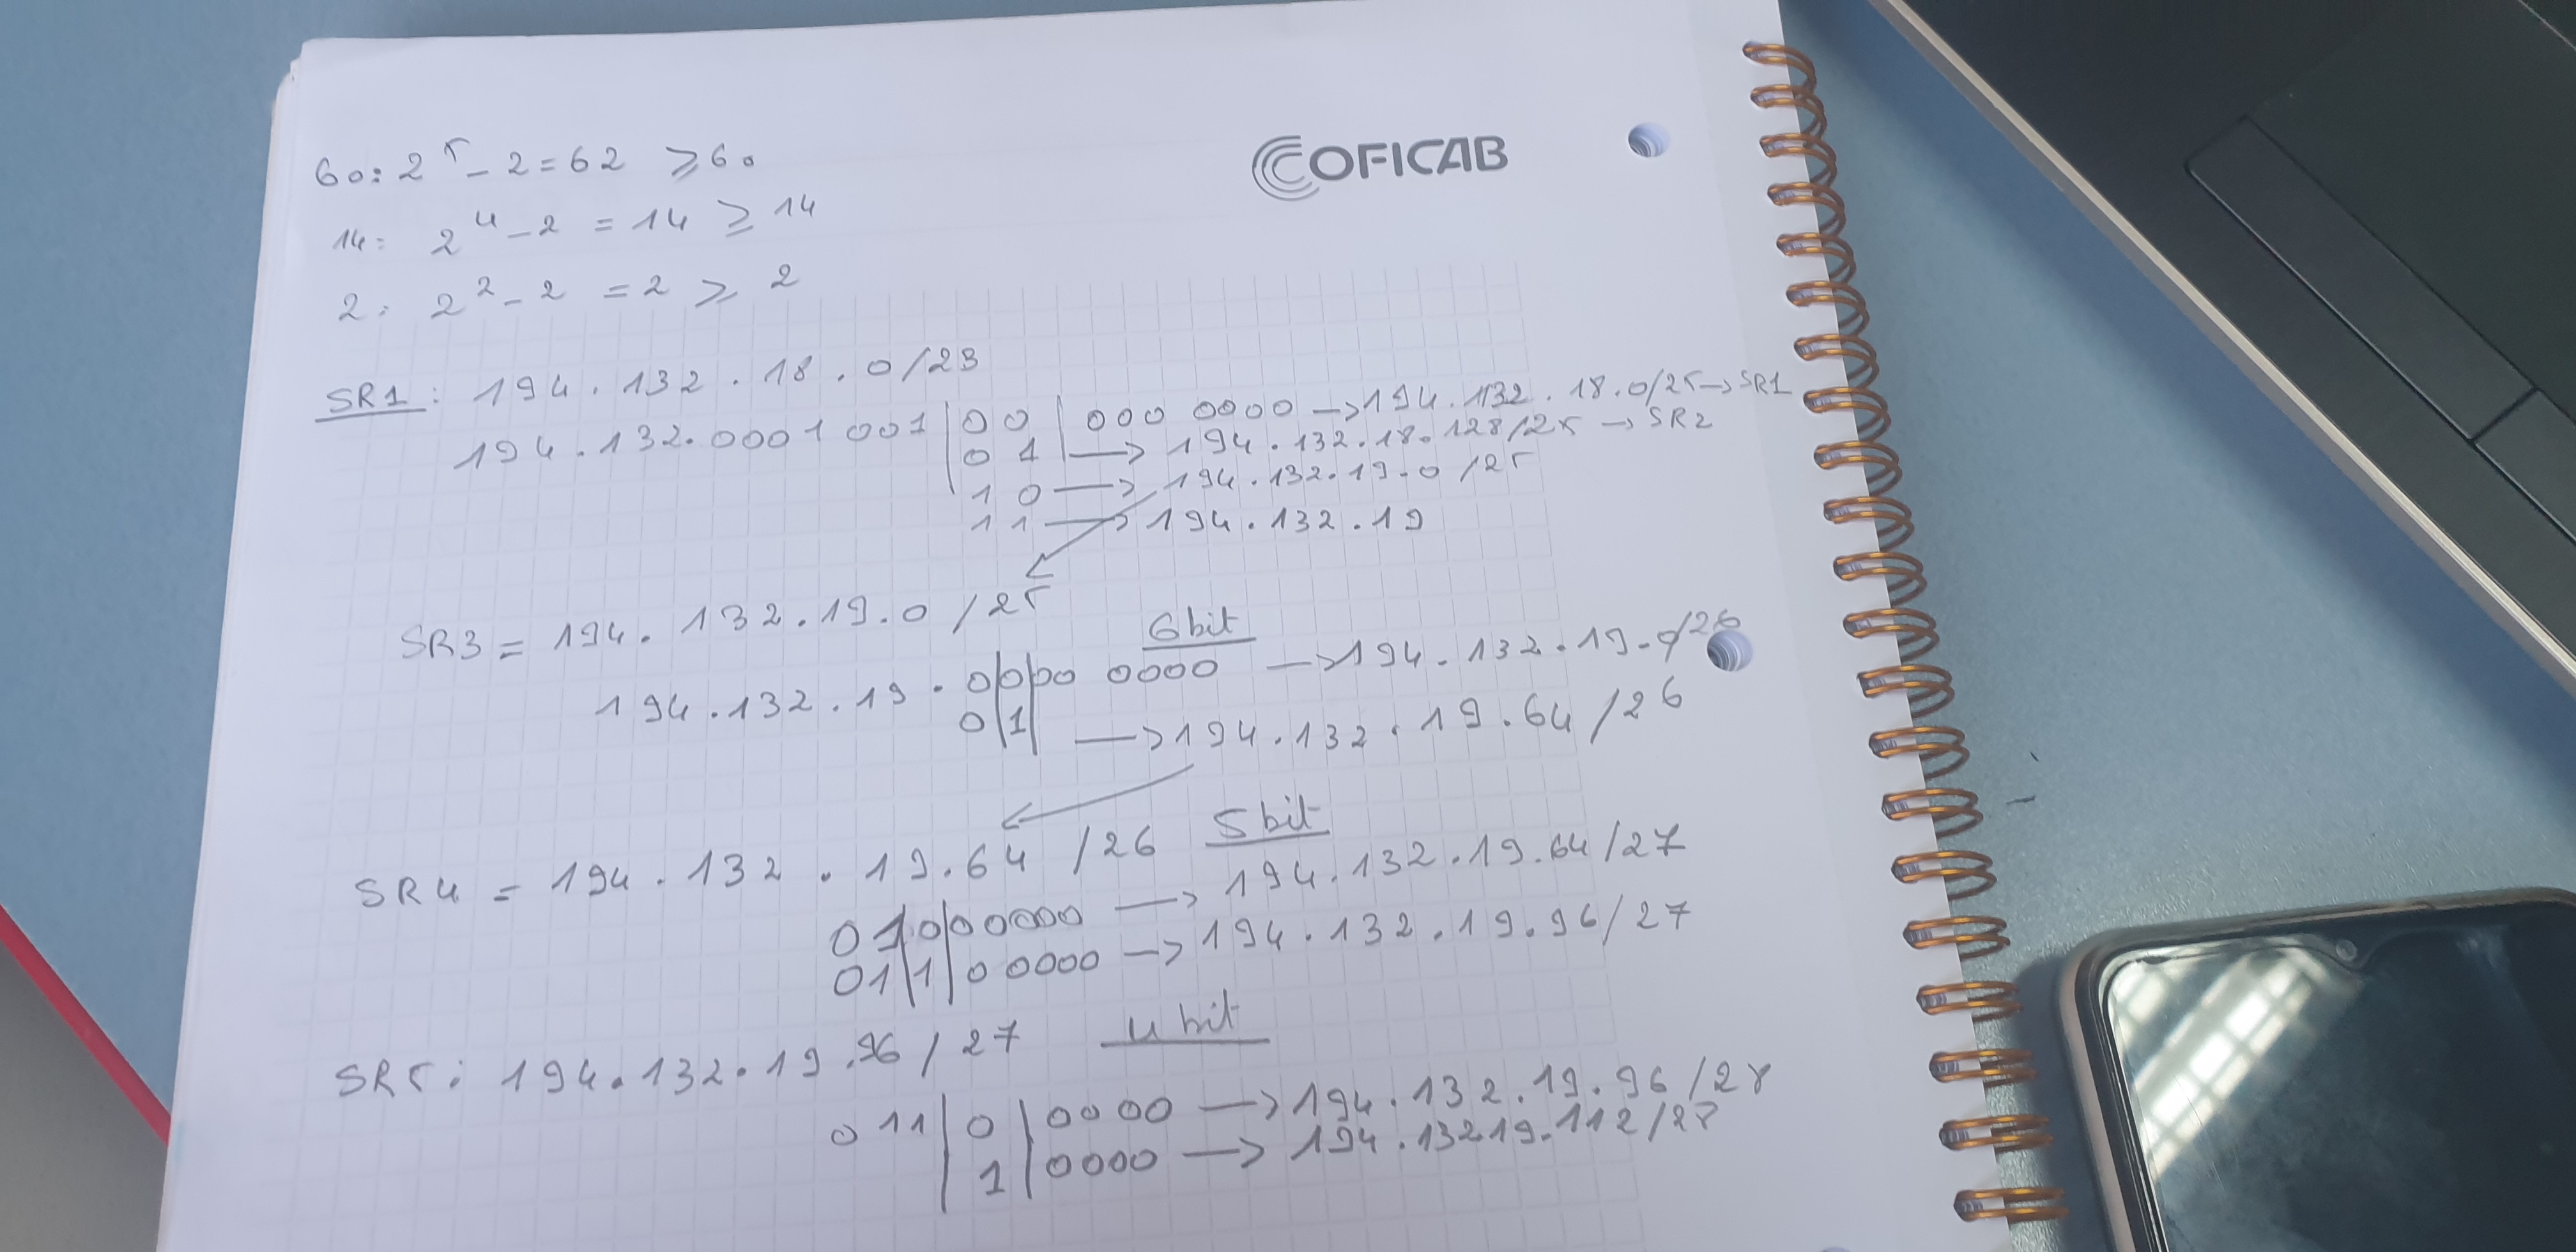 COFICAB
60: 2^5 - 2 = 62 ≥ 60
14: 2^4 - 2 = 14 ≥ 14
2: 2^2 - 2 = 2 ≥ 2
SR1: 194.132.18.0/23
194.132.0001 001|00| 000 0000 -> 194.132.18.0/25 -> SR1
0 1| -> 194.132.18.128/25 -> SR2
1 0 -> 194.132.19.0/25
1 1 -> 194.132.19
SR3 = 194.132.19.0/25
6bit
194.132.19.0|0|00 0000 -> 194.132.19.0/26
0|1| -> 194.132.19.64/26
SR4 = 194.132.19.64/26 5bit
01|0|00000 -> 194.132.19.64/27
01|1|00000 -> 194.132.19.96/27
SR5: 194.132.19.96/27 4bit
011|0|0000 -> 194.132.19.96/28
1|0000 -> 194.13219.112/28